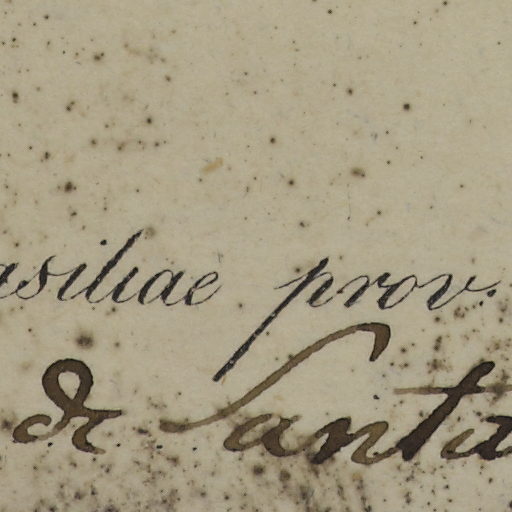 asiliae prov.
de Santa